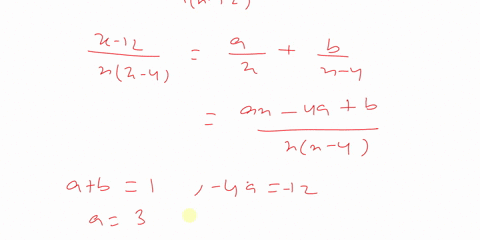 x-12 / x(x-4) = a/x + b/x-4
= ax - 4a + b / x(x-4)
a+b = 1 , -4a = -12
a = 3